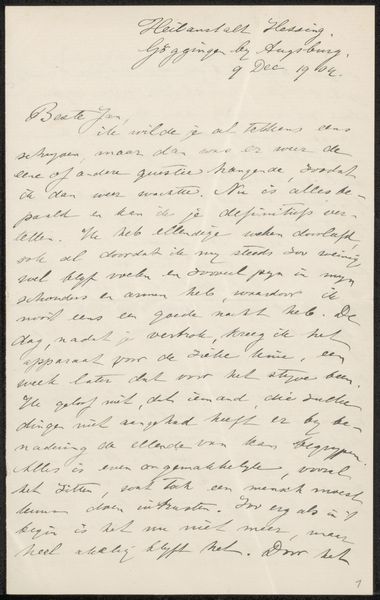 Heilanstalt Hessing.
Göggingen by Augsburg.
9 Dec 1904.
Beste Jan,
ik wilde je al telkens eens
schryven, maar dan was er weer de
eene of andere quaestie hangende, zoodat
ik dan weer wachtte. Nu is alles be-
paald en kan ik je definitief ver-
tellen. Ik heb ellendige weken doorleefd,
ook al doordat ik my steeds zoo weinig
wel blyf voelen en zooveel pyn in myn
schouders en armen heb, waardoor ik
nooit eens een goede nacht heb. De
dag, nadat je vertrok, kreeg ik het
apparaat voor de zieke knie, een
week later dat voor het styve been.
Ik geloof niet, dat iemand, die zulke
dingen niet aangehad heeft er by be-
nadering de ellende van kan begrypen.
Alles is even ongemakkelyk, vooral
het zitten, wat toch een mensch moest
kunnen doen uitrusten. Zoo erg als in 't
begin is het nu niet meer, maar
heel akelig blyft het. Door het
1